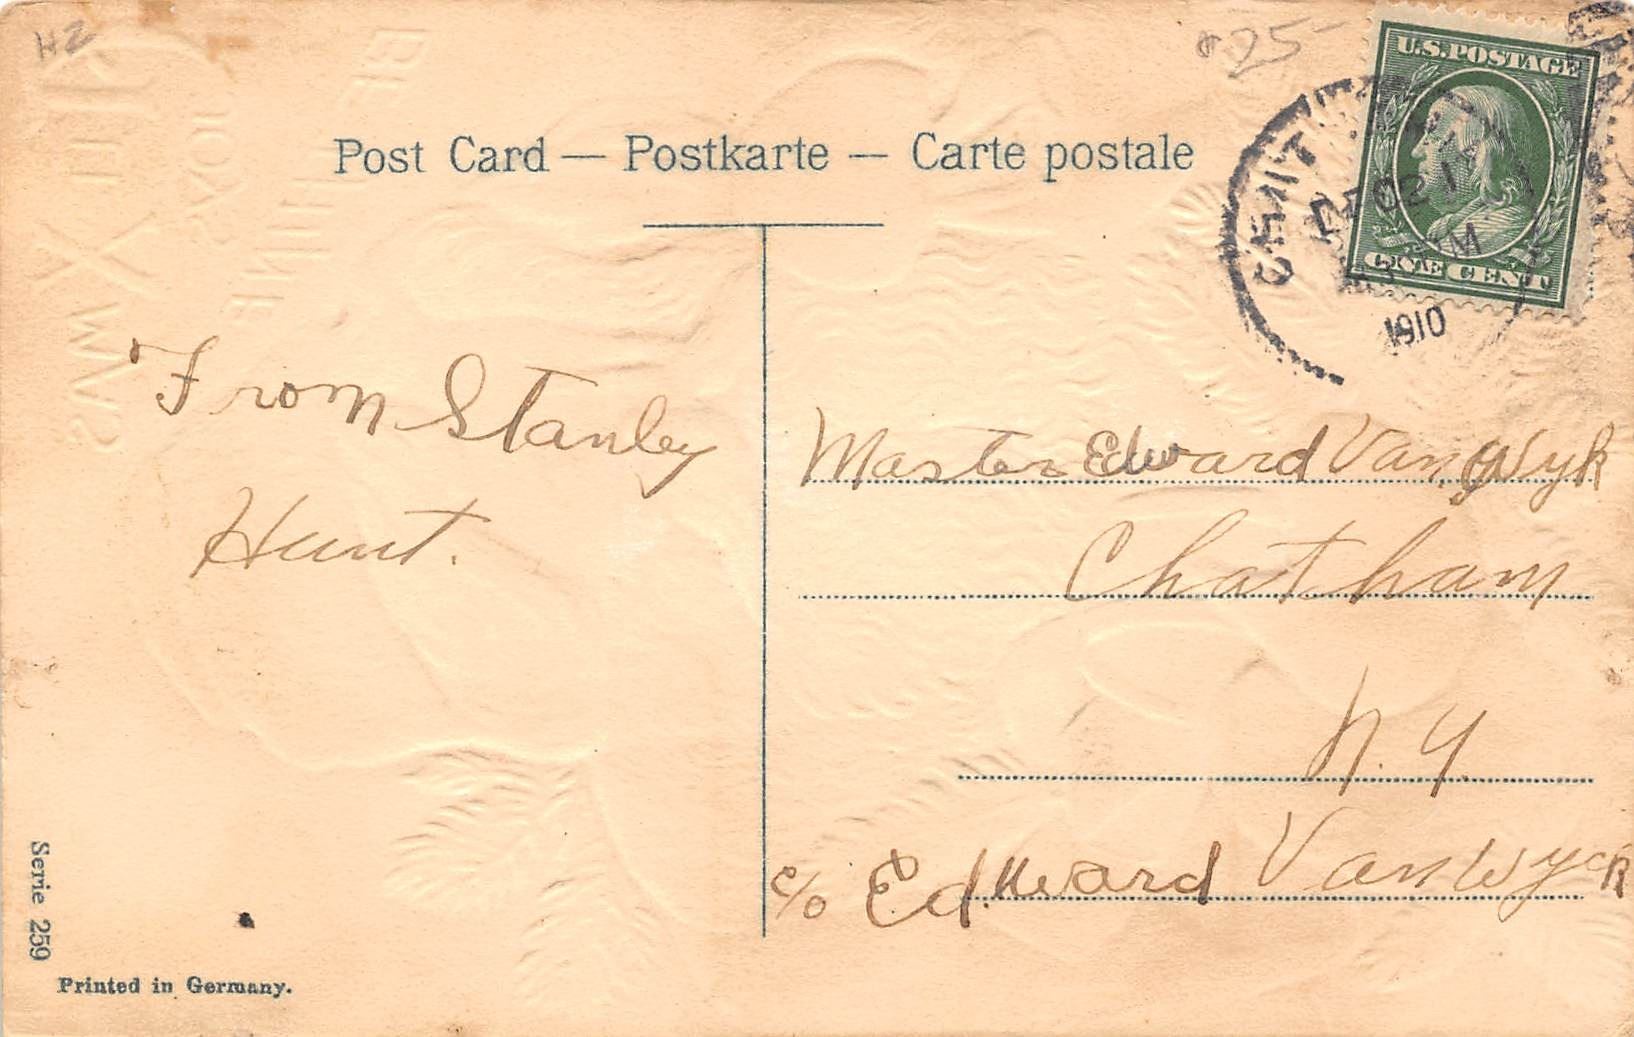 HZ
$25-
U.S. POSTAGE
Post Card — Postkarte — Carte postale
DEC 21
M
ONE CENT
1910
From Stanley
Hunt.
Master Edward Van Wyk
Chatham
N. Y.
c/o Edward Van Wyck
Serie 259
Printed in Germany.